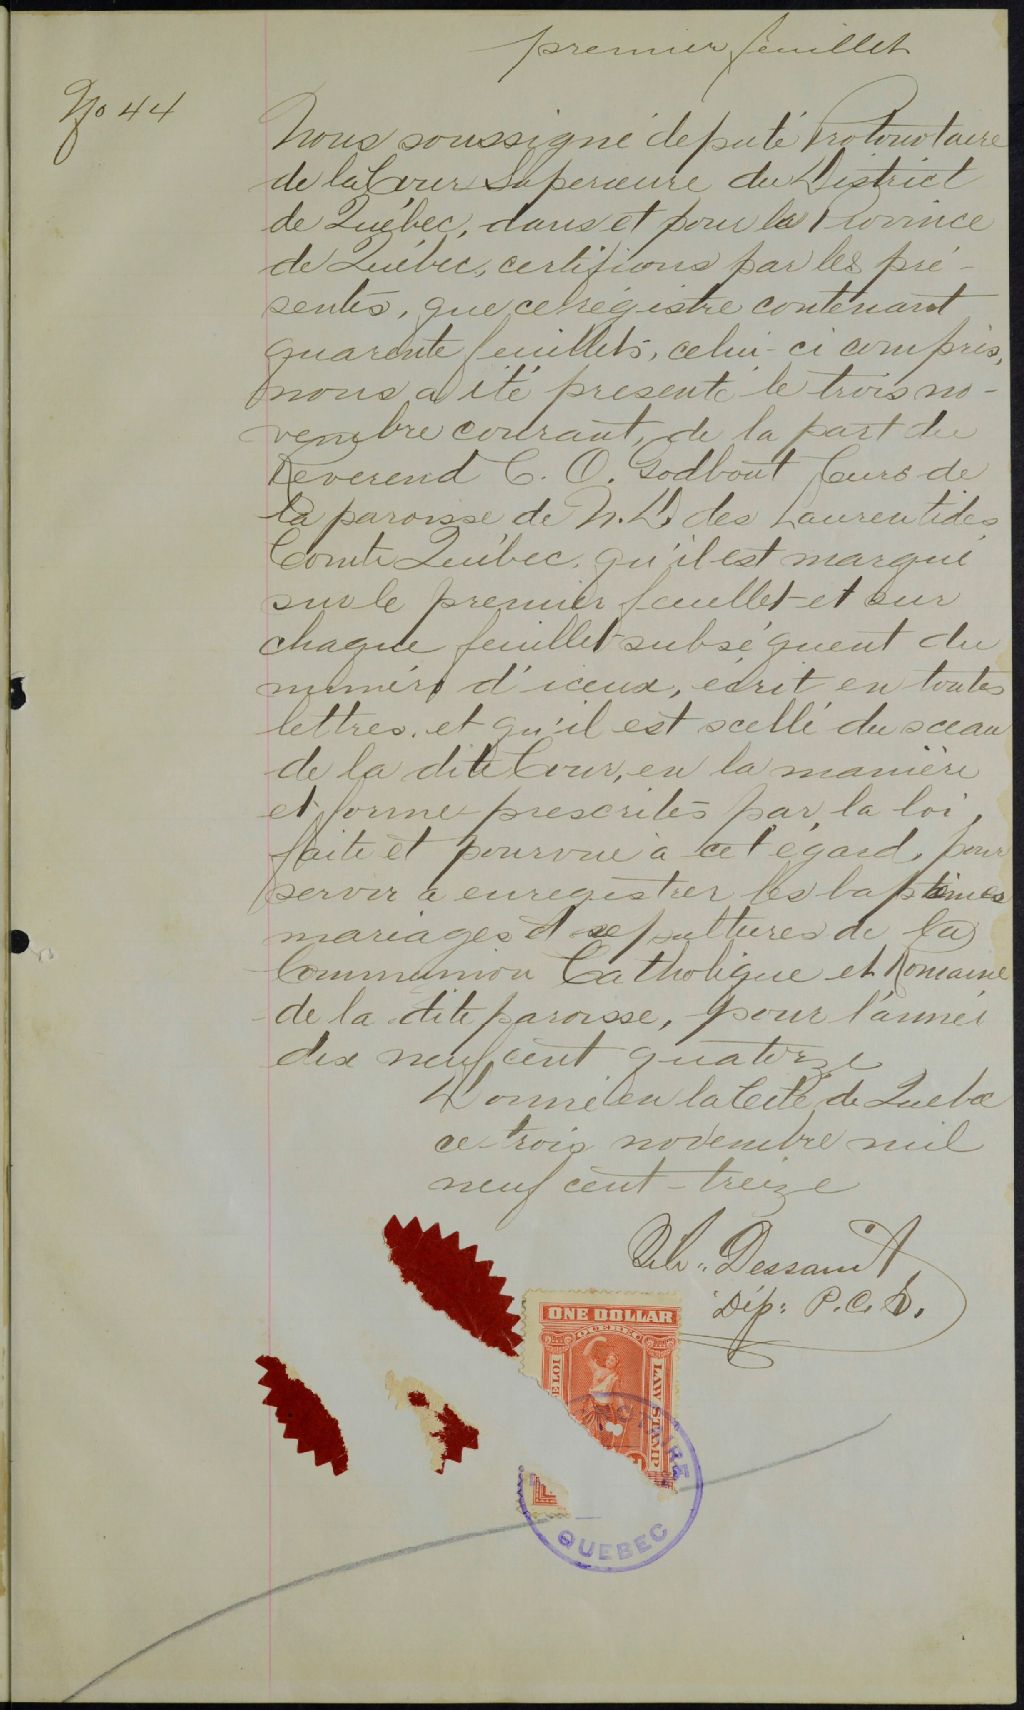 premier feuillet
No 44
Nous soussigné député Protonotaire
de la Cour Superieure du District
de Québec, dans et pour la Province
de Québec, certifions par les pré-
sentes, que ce régistre contenant
quarente feuillets, celui-ci compris,
nous a été presenté le trois no-
vembre courant, de la part du
Reverend C. O. Godbout Curé de
la paroisse de N. D. des Laurentides
Comté Québec, qu'il est marqué
sur le premier feuillet et sur
chaque feuillet subséquent du
numéro d'iceux, écrit en toutes
lettres, et qu'il est scellé du sceau
de la dite Cour, en la manière
et forme prescrites par la loi,
faite et pourvue à cet égard, pour
servir a enregistrer les baptêmes
mariages et sepultures de la
Communion Catholique et Romaine
de la dite paroisse, pour l'année
dix neuf cent quatorze
Donné en la Cité de Quebec
ce trois novembre mil
neuf cent-treize
Dessaint
Dép: P.C.S.
ONE DOLLAR
QUEBEC
DE LOI
LAW STAMP
QUEBEC